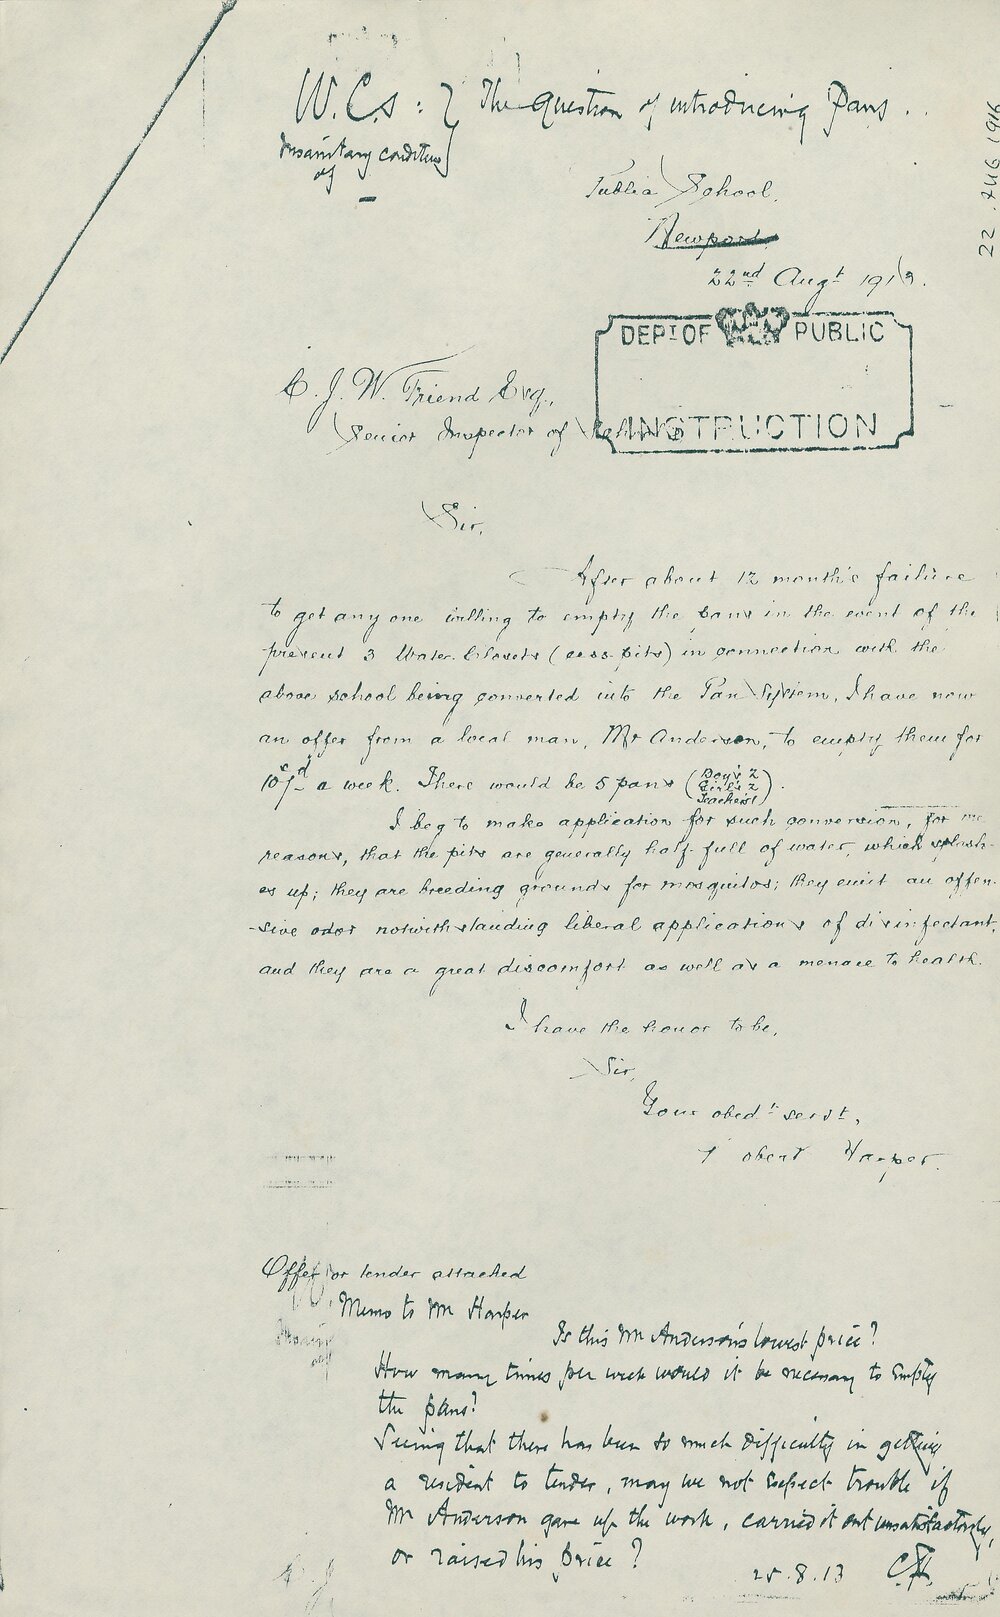 W.C.s : } The Question of introducing Pans.
Insanitary condition
of
Public School,
Newport
22nd Augt 1913.
22 AUG 1916
DEPT OF PUBLIC
INSTRUCTION
C. J. W. Friend Esq.,
Senior Inspector of Schools
Sir,
After about 12 month's failure
to get any one willing to empty the pans in the event of the
present 3 Water Closets (cess pits) in connection with the
above school being converted into the Pan System, I have now
an offer from a local man, Mr Anderson, to empty them for
10s/-d a week. There would be 5 pans (Boys 2
Girls 2
Teachers 1).
I beg to make application for such conversion, for the
reasons, that the pits are generally half-full of water, which splash-
es up; they are breeding grounds for mosquitos; they emit an offen-
-sive odor notwithstanding liberal applications of disinfectant,
and they are a great discomfort as well as a menace to health.
I have the honor to be,
Sir,
Your obedt servt,
Robert Harper.
Offer or tender attached
Memo to Mr Harper
Is this Mr Anderson's lowest price?
How many times per week would it be necessary to empty
the pans?
Seeing that there has been so much difficulty in getting
a resident to tender, may we not expect trouble if
Mr Anderson gave up the work, carried it out unsatisfactorily,
or raised his price?
25.8.13